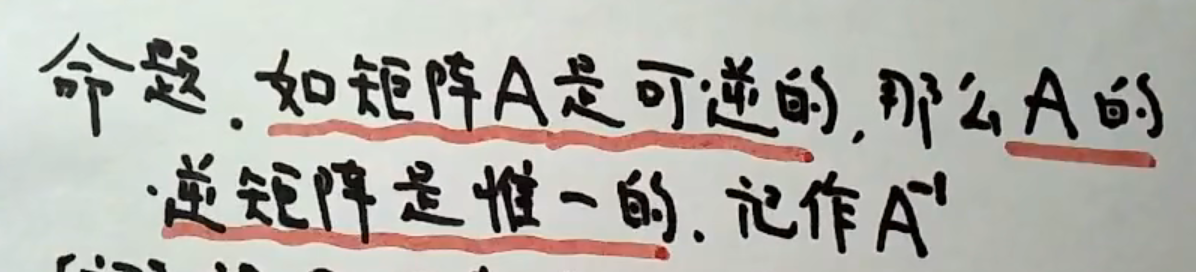 命题.如矩阵A是可逆的,那么A的
逆矩阵是惟一的.记作A⁻¹